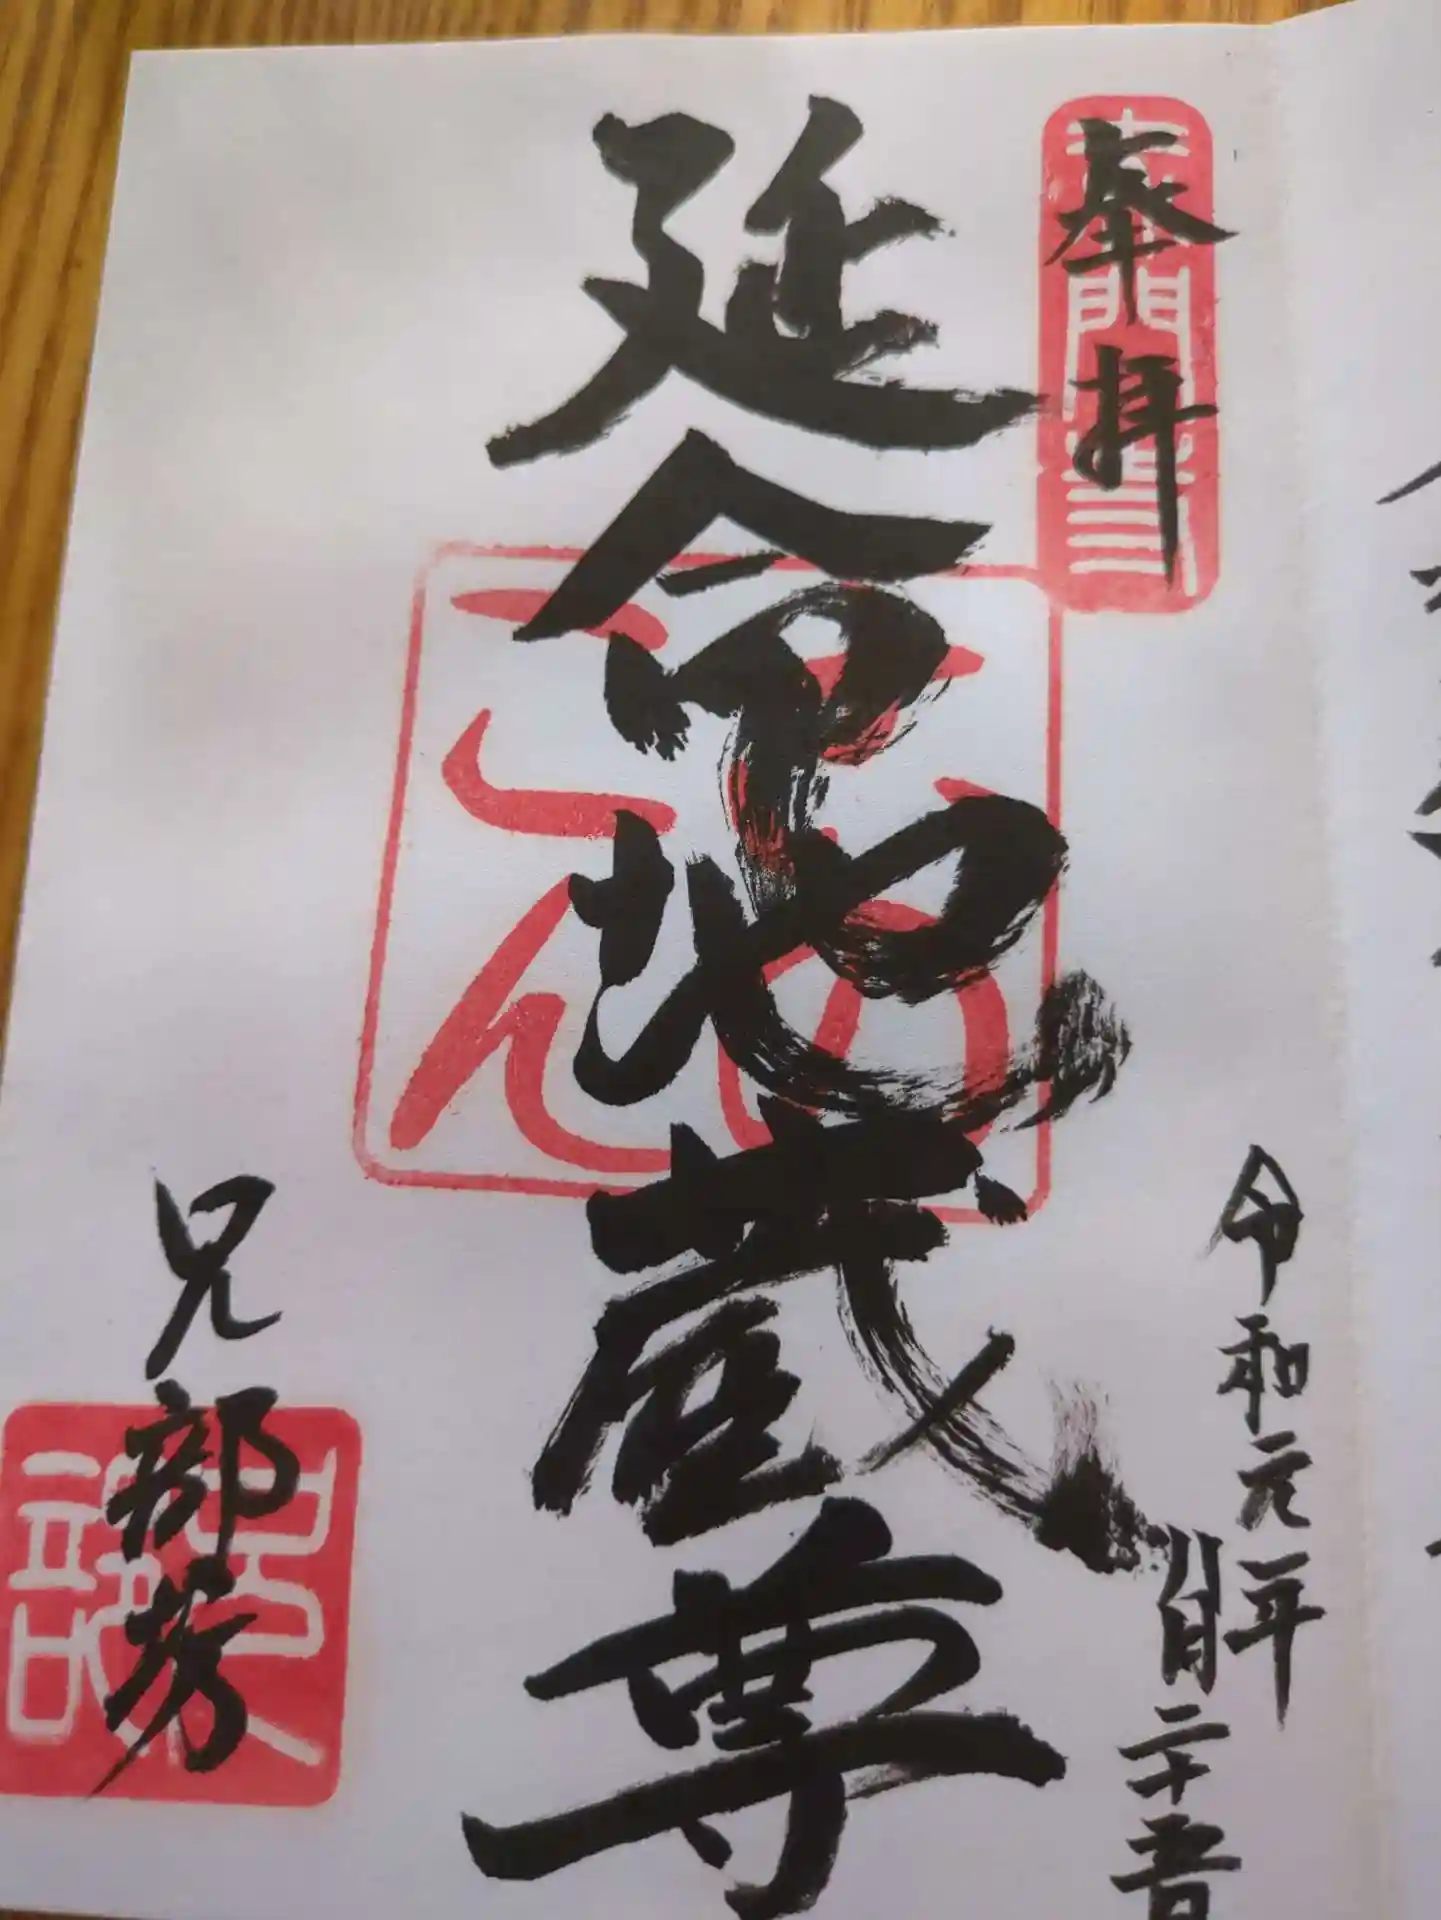 奉拝
延命地蔵尊
令和元年
八月二十五日
兄部芳